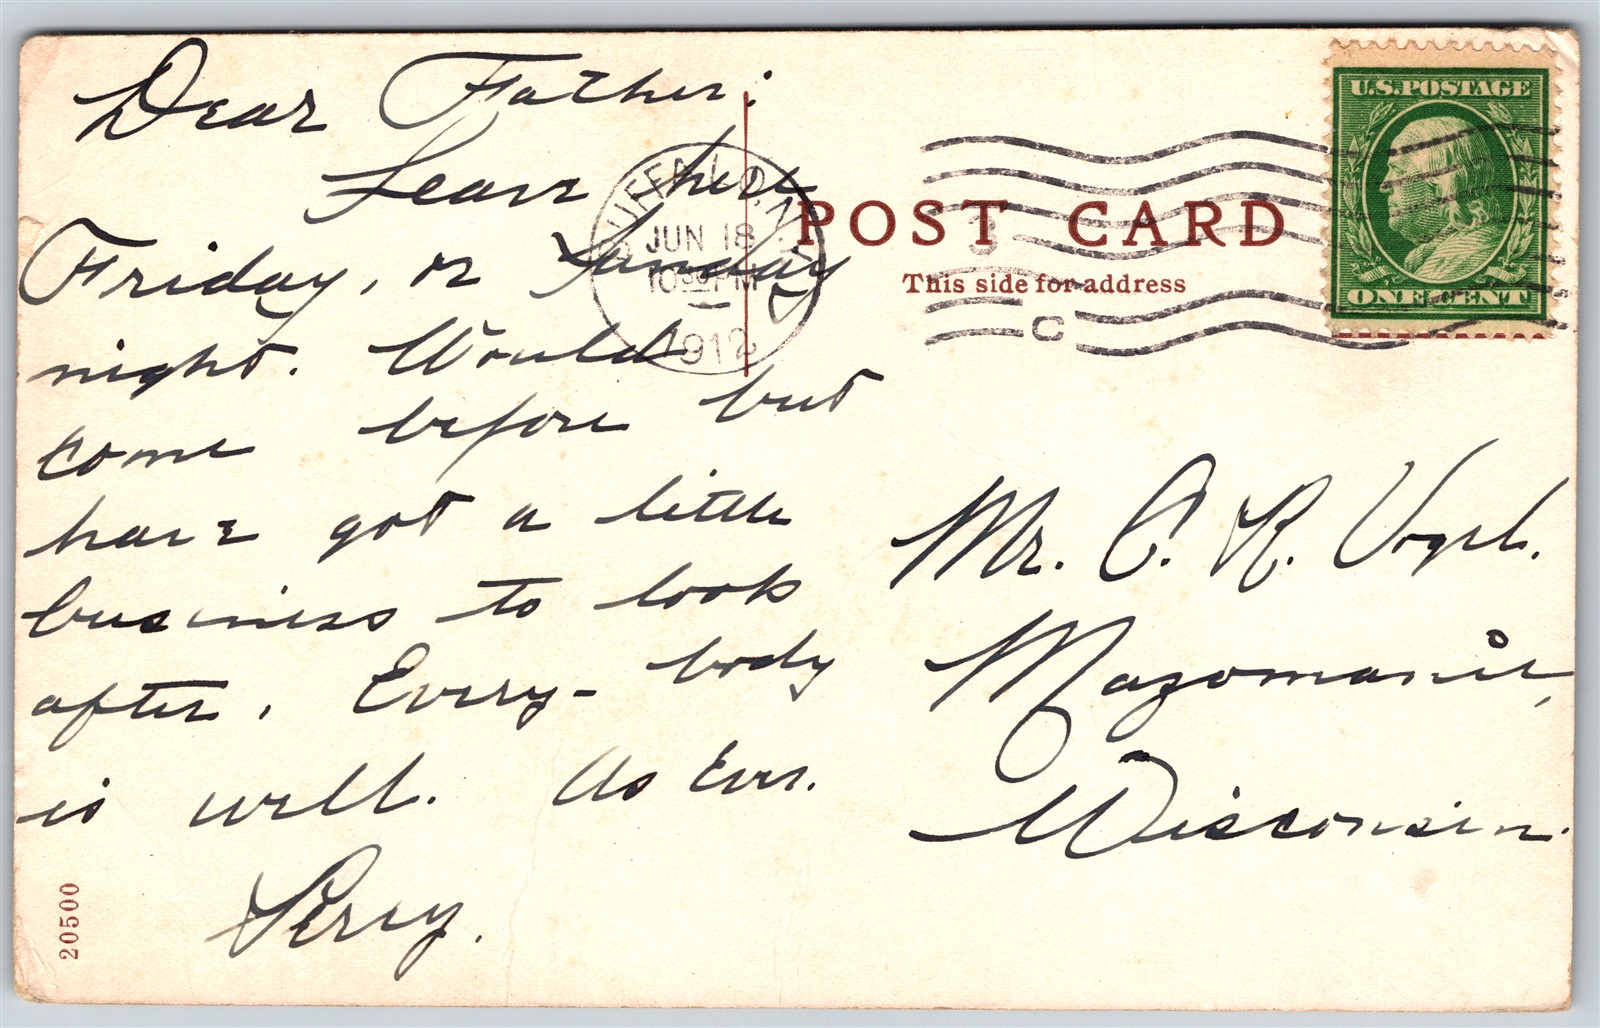 Dear Father:
Leave here
Friday, or Sunday
night. Would
come before but
have got a little
business to look
after. Every-body
is well. As Ever.
Percy.
20500
BUFFALO, N.Y.
JUN 18
10 30 PM
1912
POST CARD
This side for address
C
U.S.POSTAGE
ONE CENT
Mr. C. R. Vogel.
Mazomanie,
Wisconsin.